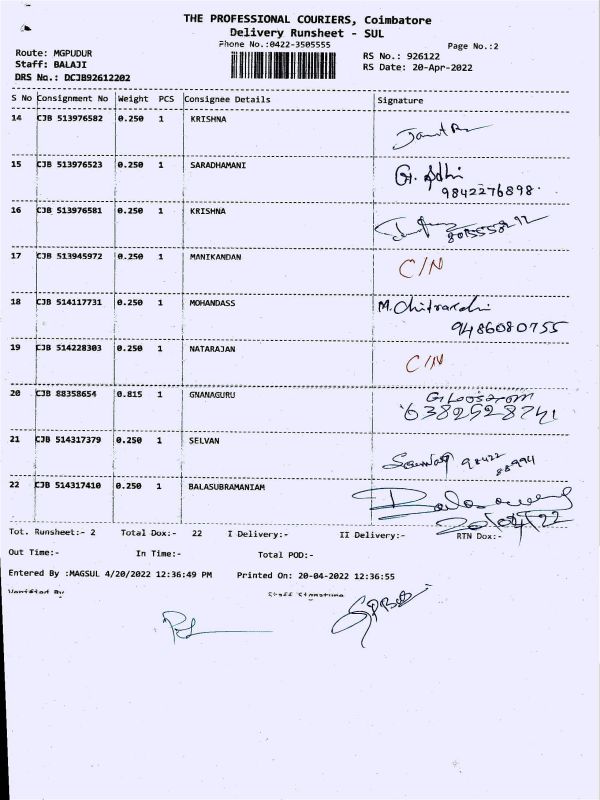 THE PROFESSIONAL COURIERS, Coimbatore
Delivery Runsheet - SUL
Phone No.:0422-3505555
Page No.:2
Route: MGPUDUR
RS No.: 926122
Staff: BALAJI
RS Date: 20-Apr-2022
DRS No.: DCJB92612202
S No Consignment No Weight PCS Consignee Details Signature
14 CJB 513976582 0.250 1 KRISHNA
15 CJB 513976523 0.250 1 SARADHAMANI G. Adhi
9842276898.
16 CJB 513976581 0.250 1 KRISHNA
17 CJB 513945972 0.250 1 MANIKANDAN C/N
18 CJB 514117731 0.250 1 MOHANDASS M. Chitrakdhi
9486080755
19 CJB 514228303 0.250 1 NATARAJAN C/N
20 CJB 88358654 0.815 1 GNANAGURU
21 CJB 514317379 0.250 1 SELVAN
22 CJB 514317410 0.250 1 BALASUBRAMANIAM
20/04/22
Tot. Runsheet:- 2 Total Dox:- 22 I Delivery:- II Delivery:- RTN Dox:-
Out Time:- In Time:- Total POD:-
Entered By :MAGSUL 4/20/2022 12:36:49 PM Printed On: 20-04-2022 12:36:55
Verified By Staff Signature